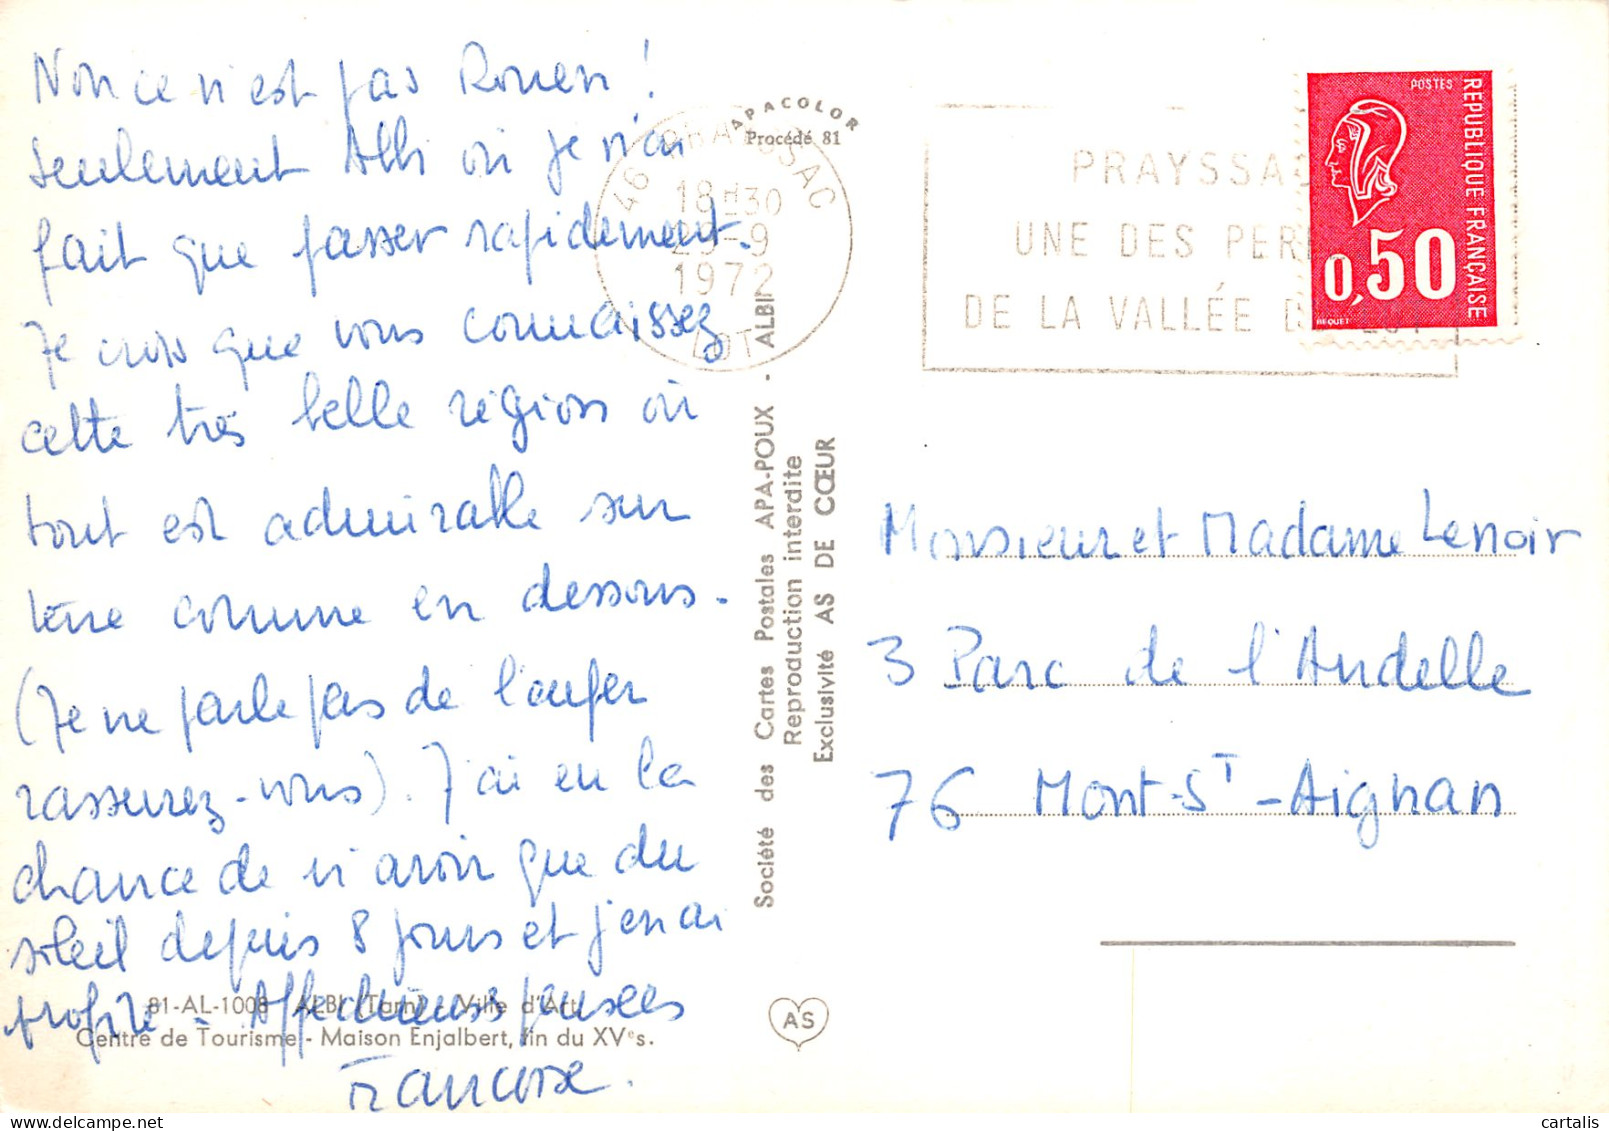 Non ce n'est pas Rouen !
seulement Albi où je n'ai
fait que passer rapidement.
Je crois que vous connaissez
cette très belle région où
tout est admirable sur
terre comme en dessous.
(Je ne parle pas de l'enfer
rassurez-vous). J'ai eu la
chance de n'avoir que du
soleil depuis 8 jours et j'en ai
profité - Affectueuses pensées
Françoise.
81-AL-1008 ALBI (Tarn) - Ville d'Art
Centre de Tourisme - Maison Enjalbert, fin du XVᵉ s.
APACOLOR
Procédé 81
46 PRAYSSAC
18H30
29-9
1972
LOT
Société des Cartes Postales APA-POUX - ALBI
Reproduction interdite
Exclusivité AS DE CŒUR
AS
PRAYSSAC
UNE DES PER
DE LA VALLÉE D LOT
POSTES
REPUBLIQUE FRANÇAISE
0,50
BEQUET
Monsieur et Madame Lenoir
3 Parc de l'Andelle
76 Mont-Sᵀ-Aignan
cartalis